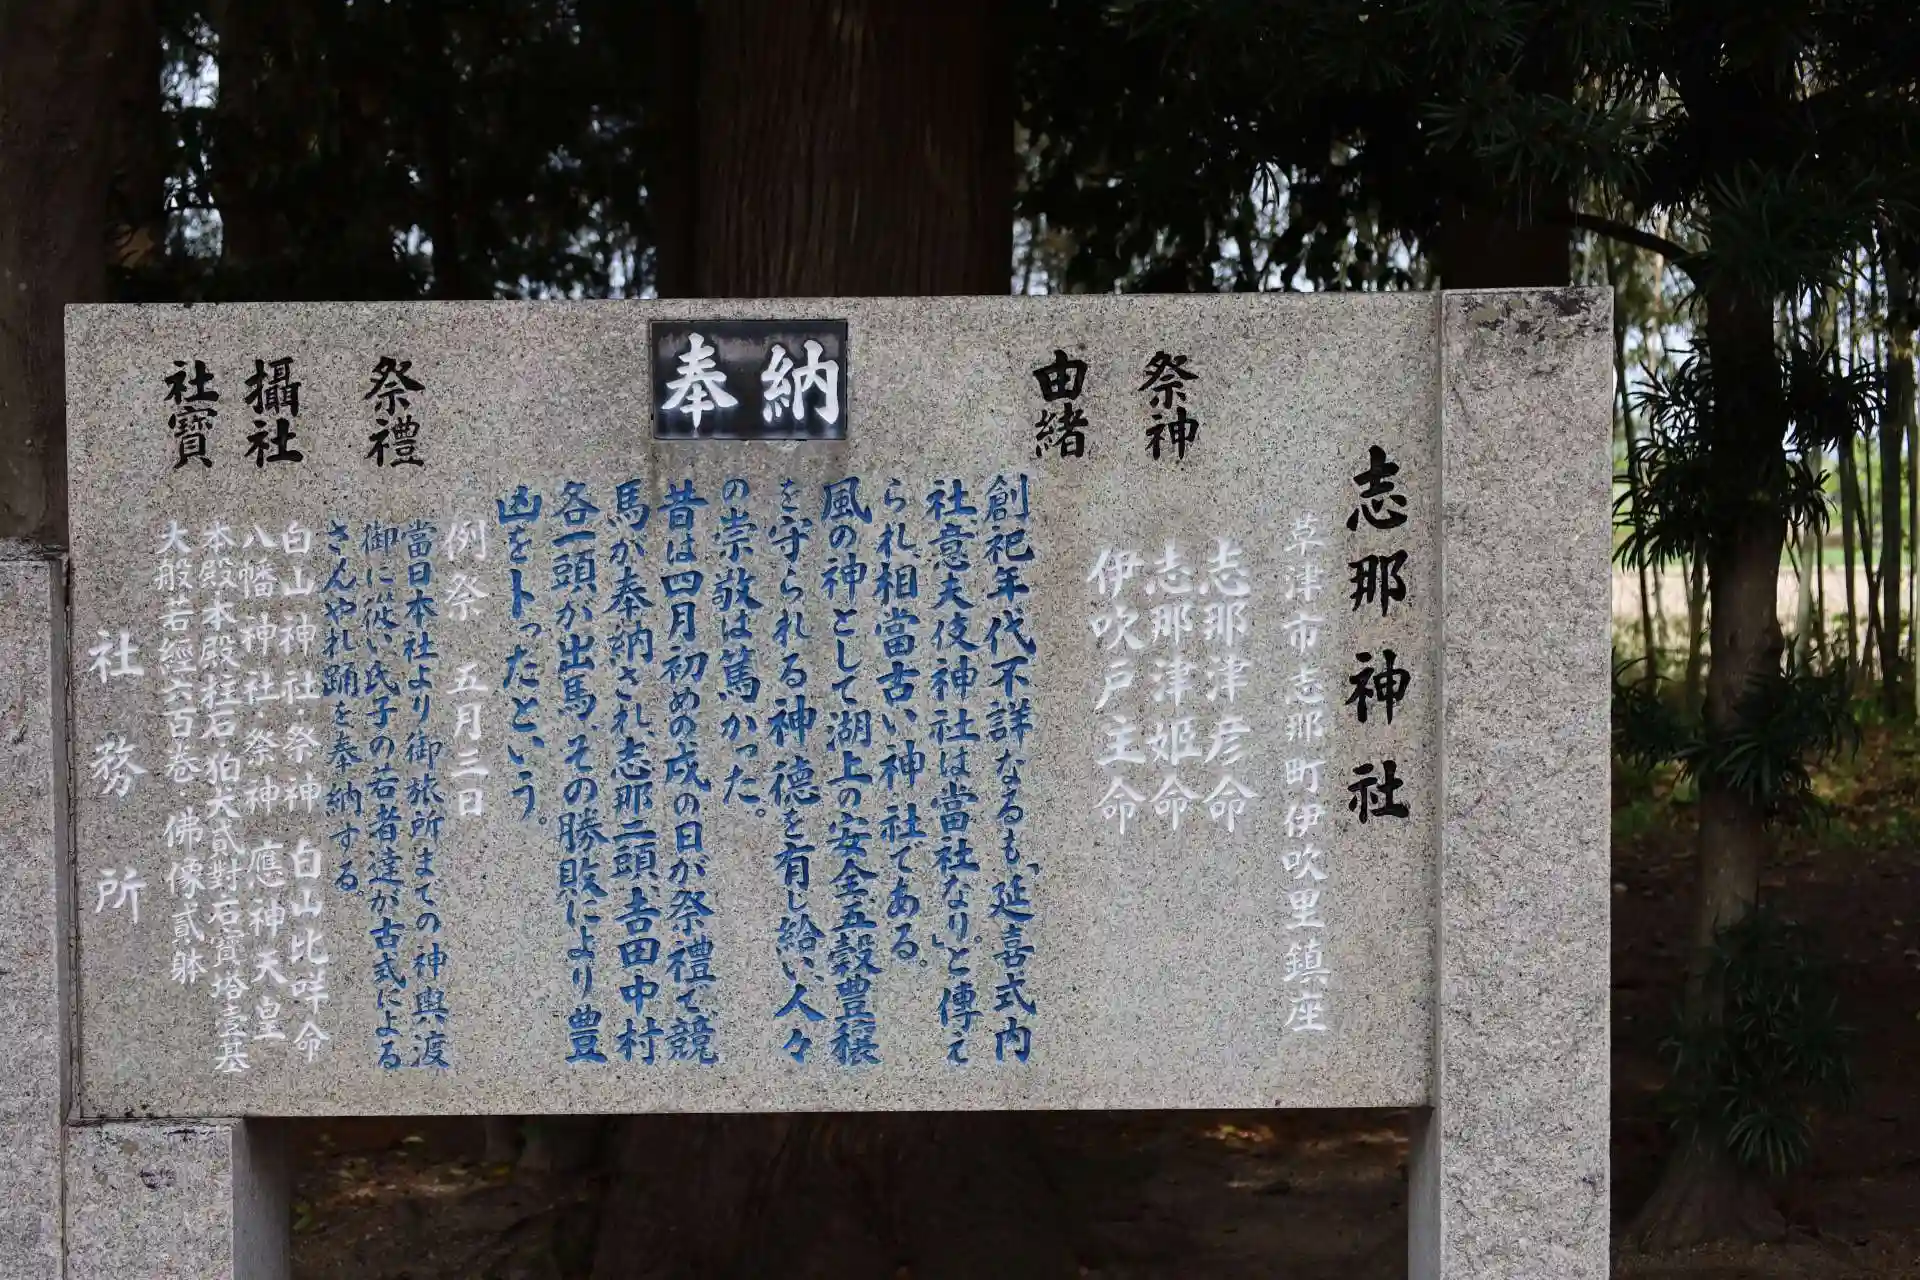 奉納
志那神社
草津市志那町伊吹里鎮座
祭神
志那津彦命
志那津姫命
伊吹戸主命
由緒
創祀年代不詳なるも「延喜式内
社、意夫伎神社は當社なり。」と傳え
られ、相當古い神社である。
風の神として湖上の安全、五穀豊穣
を守られる神徳を有し給い、人々
の崇敬は篤かった。
昔は四月初めの戌の日が祭禮で競
馬が奉納され、志那二頭、吉田中村
各一頭が出馬、その勝敗により豊
凶をトったという。
祭禮
例祭 五月三日
當日本社より御旅所までの神輿渡
御に従い氏子の若者達が古式による
さんやれ踊を奉納する。
攝社
白山神社・祭神 白山比咩命
八幡神社・祭神 應神天皇
社寶
本殿本殿柱石狛犬貳對石寶塔壹基
大般若經六百巻・佛像貳躰
社務所